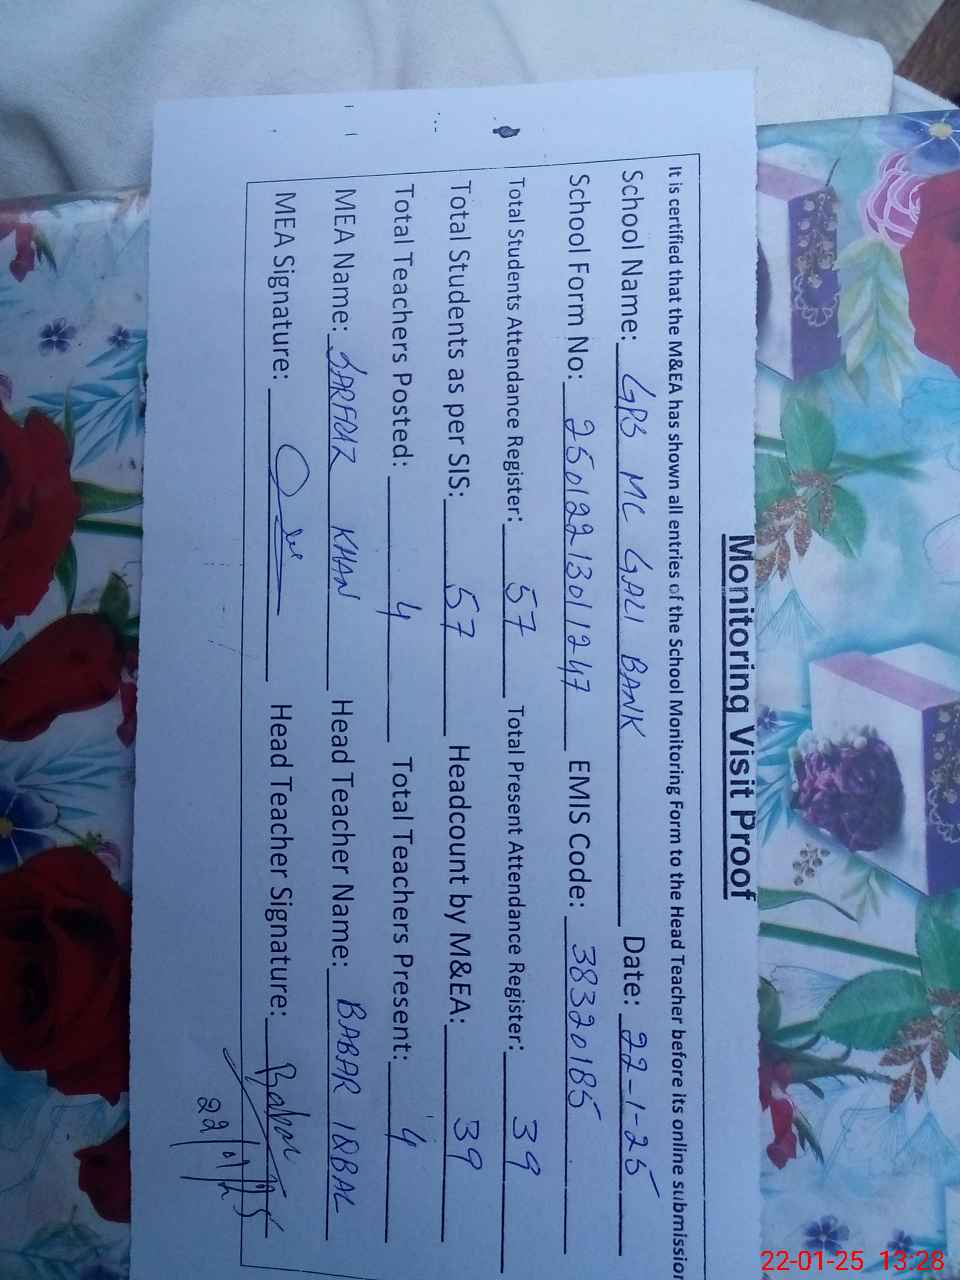 Monitoring Visit Proof
It is certified that the M&EA has shown all entries of the School Monitoring Form to the Head Teacher before its online submission
School Name: GPS MC GALI BANK Date: 22-1-25
School Form No: 25012213011247 EMIS Code: 38320185
Total Students Attendance Register: 57 Total Present Attendance Register: 39
Total Students as per SIS: 57 Headcount by M&EA: 39
Total Teachers Posted: 4 Total Teachers Present: 4
MEA Name: SARFRAZ KHAN Head Teacher Name: BABAR IQBAL
MEA Signature: Head Teacher Signature: Babar
22-01-25 13:28